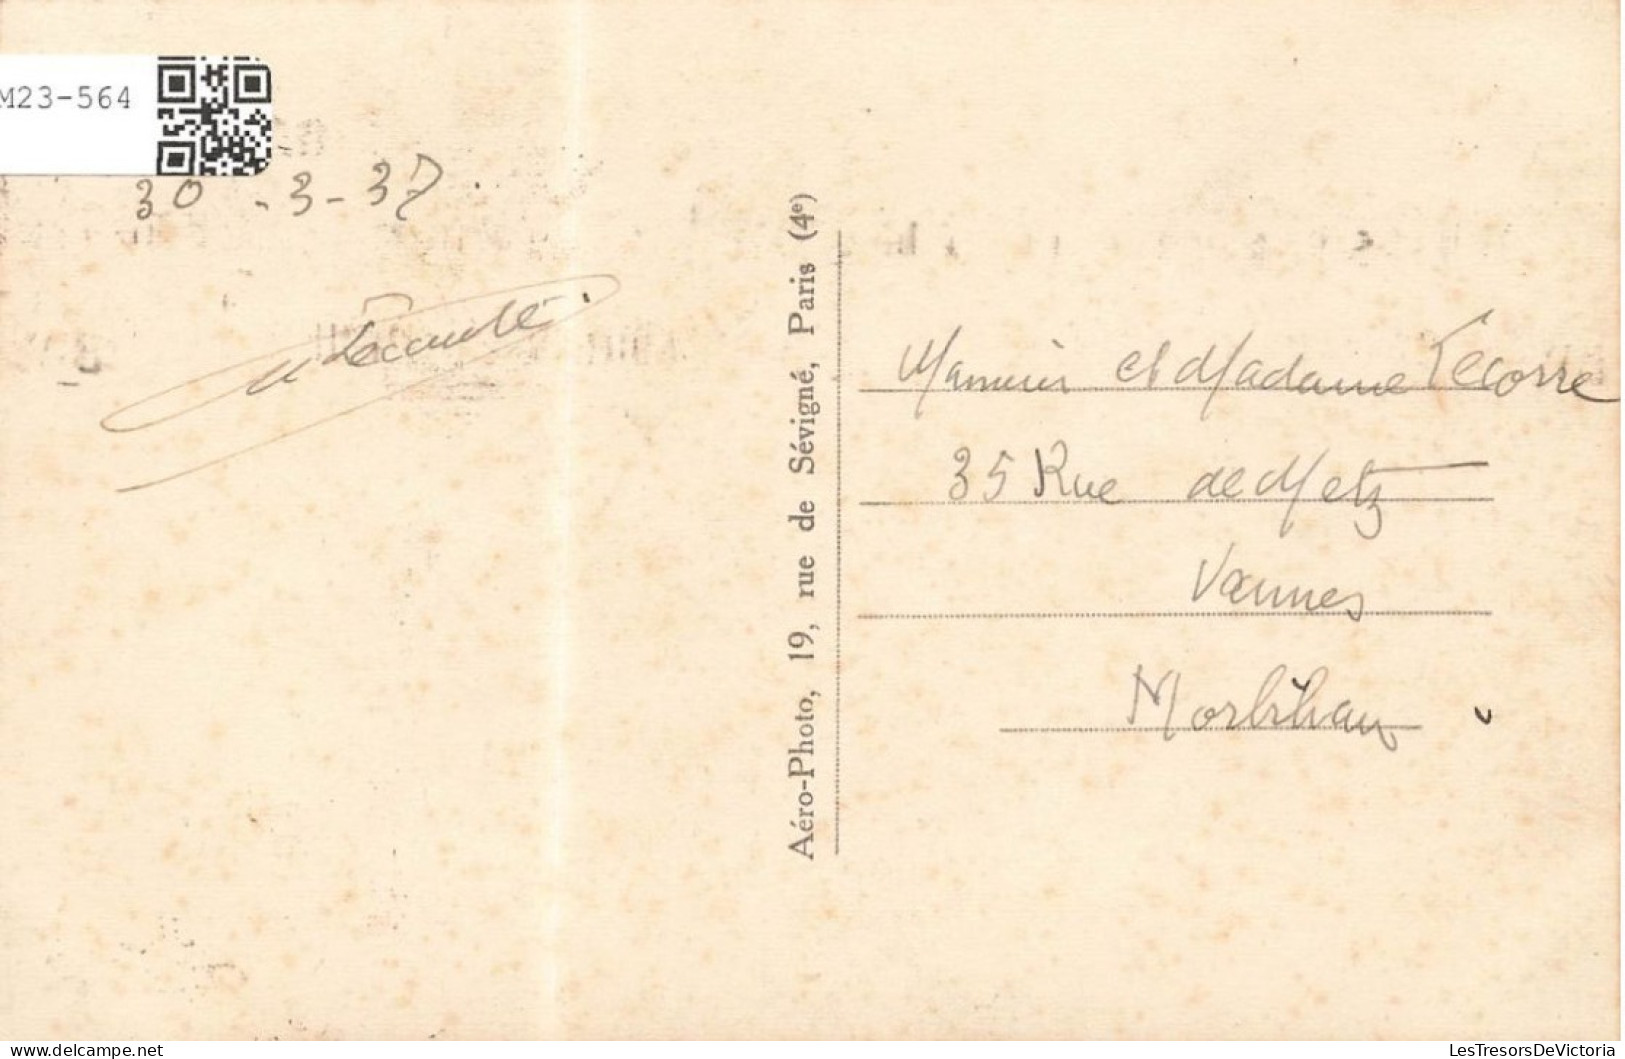 M23-564
30 - 3 - 37
Aéro-Photo, 19, rue de Sévigné, Paris (4e)
Monsieur et Madame Lecorre
35 Rue de Metz
Vannes
Morbihan
www.LesTresorsDeVictoria.com